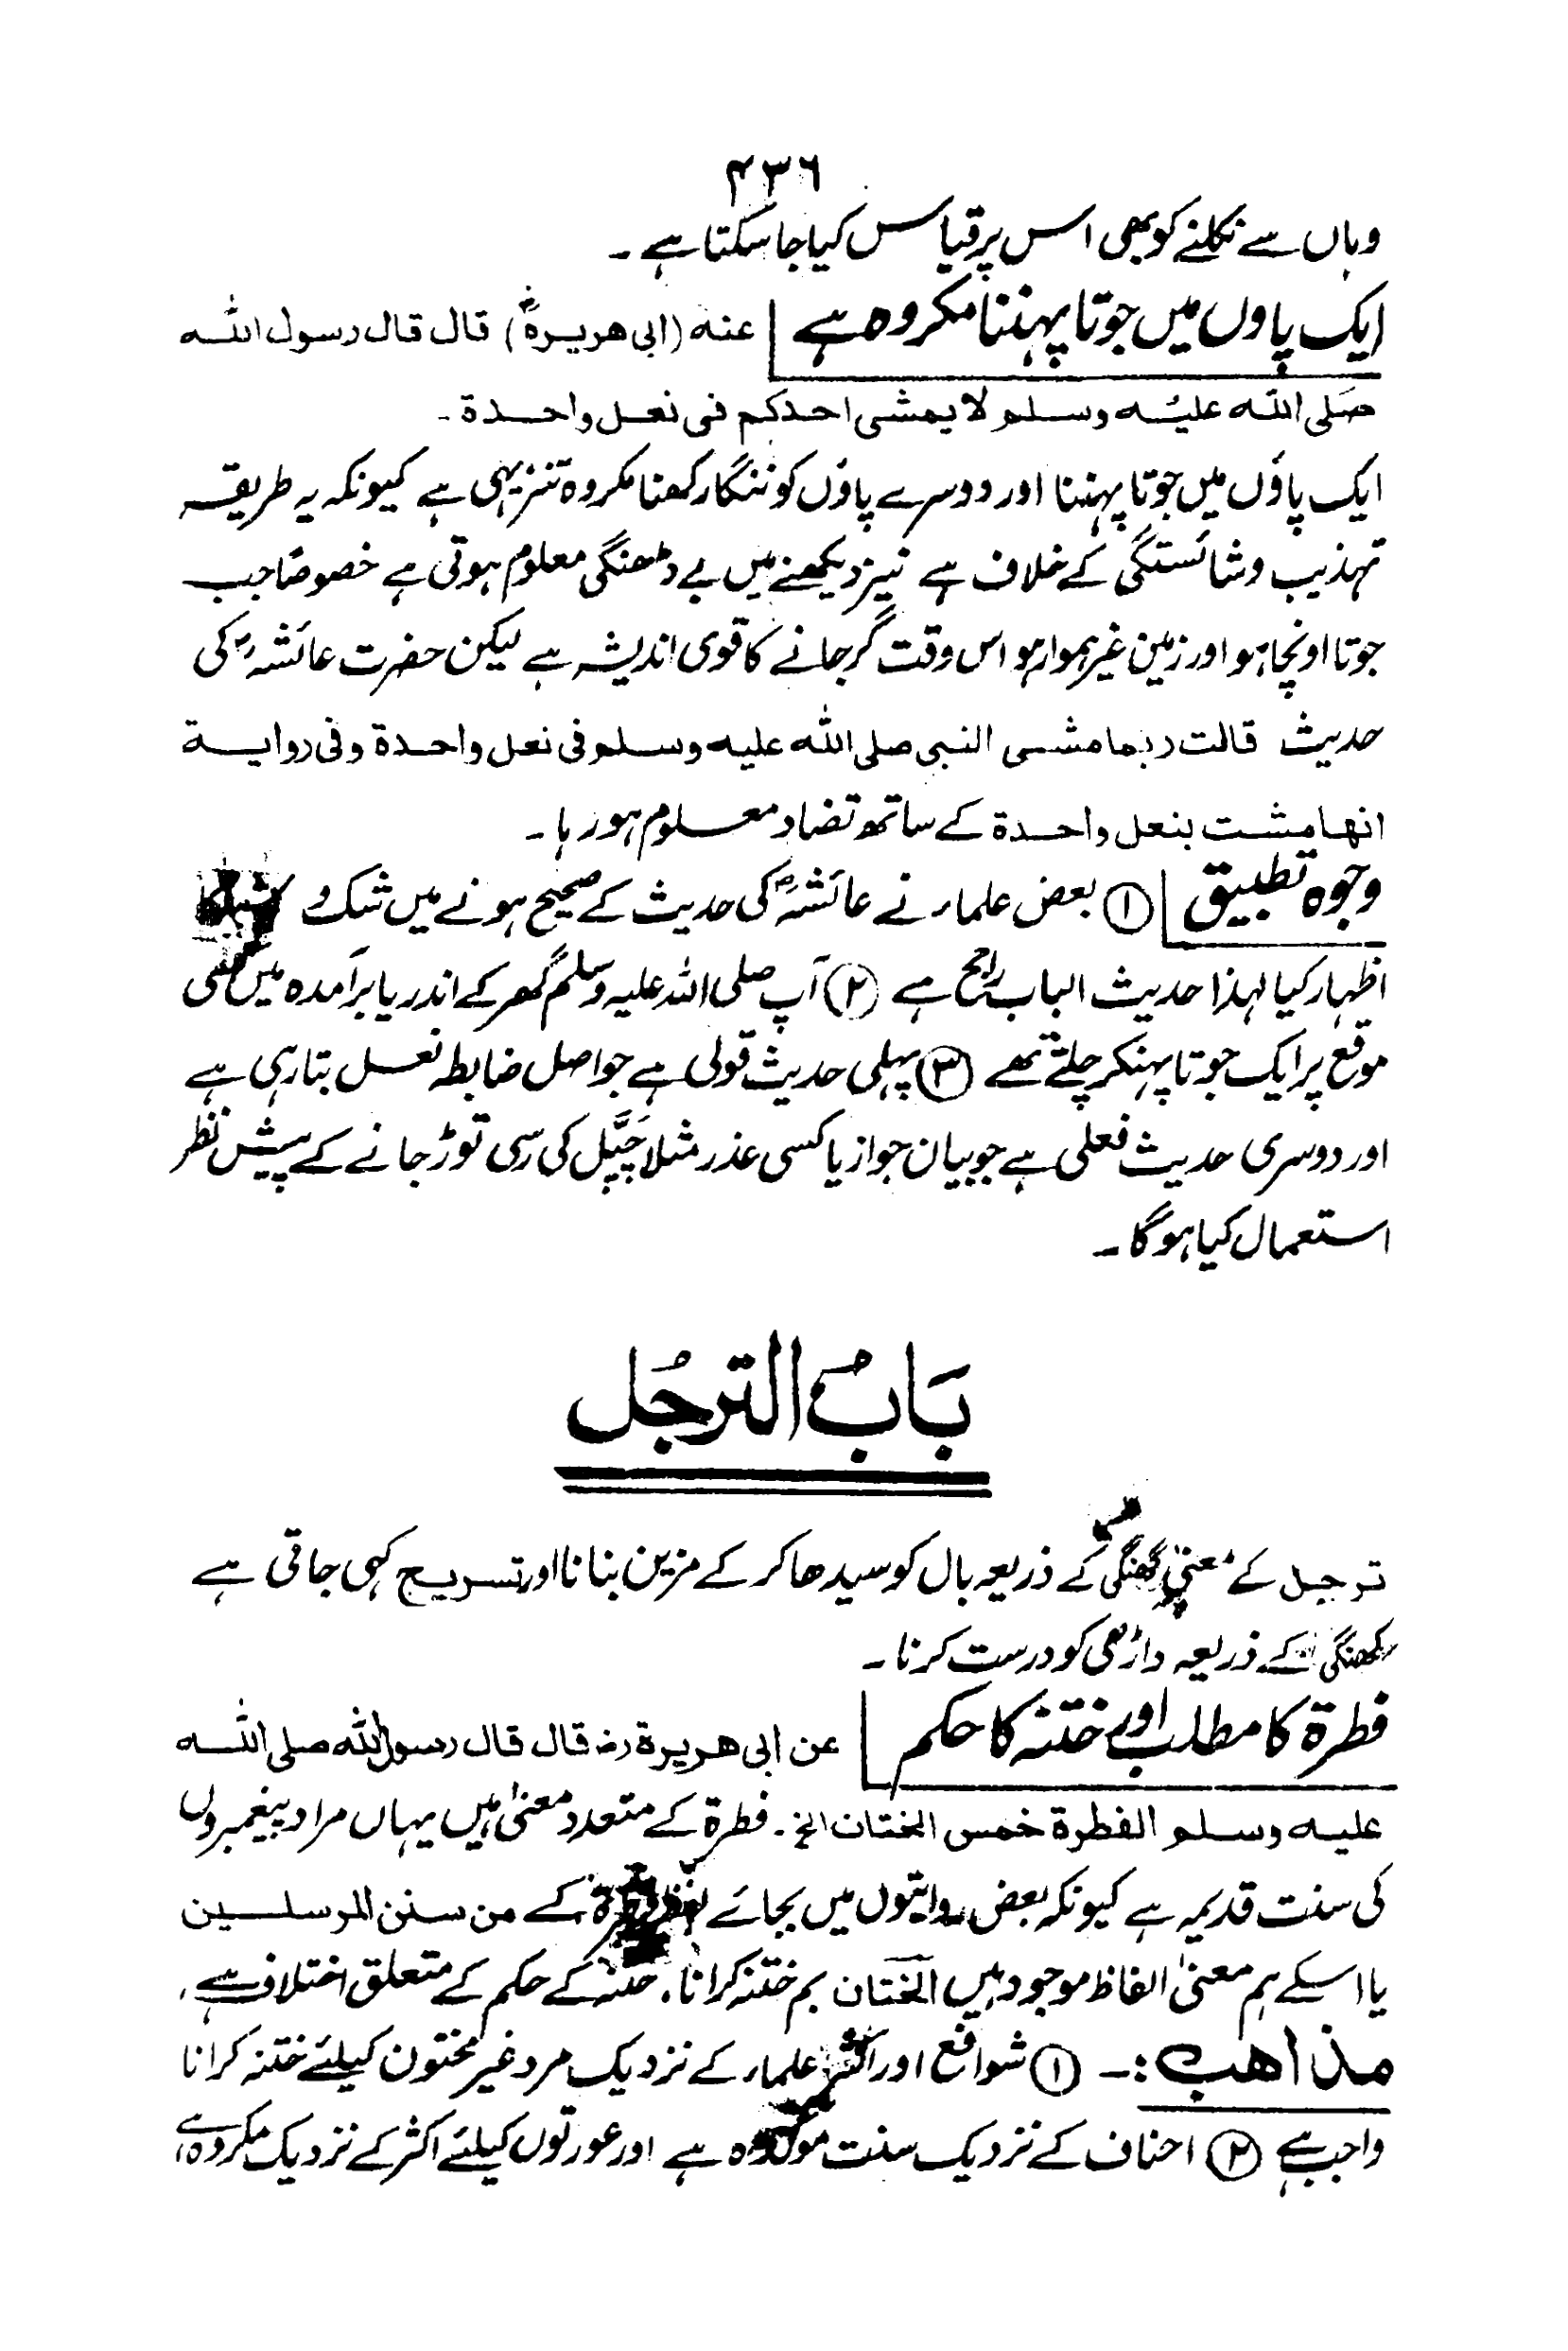 ۴۳۶
وہاں سے نکلنے کو بھی اس پر قیاس کیا جا سکتا ہے ۔
ایک پاوں میں جوتا پہننا مکروہ ہے | عنه (ابی هریرةؓ) قال قال رسول الله
صلی الله علیه وسلم لا یمشی احدکم فی نعل واحدة ۔
ایک پاؤں میں جوتا پہننا اور دوسرے پاؤں کو ننگا رکھنا مکروہ تنزیہی ہے کیونکہ یہ طریقہ
تہذیب وشائستگی کے خلاف ہے نیز دیکھنے میں بے ڈھنگی معلوم ہوتی ہے خصوصًا جب
جوتا اونچا ہو اور زمین غیر ہموار ہو اس وقت گر جانے کا قوی اندیشہ ہے لیکن حضرت عائشہؓ کی
حدیث قالت ربما مشی النبی صلی الله علیه وسلم فی نعل واحدة وفی روایة
انها مشت بنعل واحدة کے ساتھ تضاد معلوم ہو رہا ۔
وجوہ تطبیق | ① بعض علماء نے عائشہؓ کی حدیث کے صحیح ہونے میں شک و
اظہار کیا لہذا حدیث الباب راجح ہے ② آپ صلی اللہ علیہ وسلم گھر کے اندر یا برآمدہ میں کسی
موقع پر ایک جوتا پہنکر چلتے تھے ③ پہلی حدیث قولی ہے جو اصل ضابطہ نعل بتا رہی ہے
اور دوسری حدیث فعلی ہے جو بیان جواز یا کسی عذر مثلا چَپَّل کی رسی توڑ جانے کے پیش نظر
استعمال کیا ہوگا ۔
بَابُ الترجُل
ترجل کے معنیٰ گھنگی کے ذریعہ بال کو سیدھا کر کے مزین بنانا اور تسریح کہی جاتی ہے
کھنگی کے ذریعہ داڑھی کو درست کرنا ۔
فطرة کا مطلب اور ختنہ کا حکم | عن ابی هریرة رض قال قال رسول الله صلی الله
علیه وسلم الفطرة خمس الختان الخ ۔ فطرة کے متعدد معنیٰ ہیں یہاں مراد پیغمبروں
کی سنت قدیمہ ہے کیونکہ بعض روایتوں میں بجائے لفظ فطرة کے من سنن المرسلین
یا اسکے ہم معنیٰ الفاظ موجود ہیں الختان بم ختنہ کرانا ، ختنہ کے حکم کے متعلق اختلاف ہے ،
مذاهب :۔ ① شوافع اور اکثر علماء کے نزدیک مرد غیر مختون کیلئے ختنہ کرانا
واجب ہے ② احناف کے نزدیک سنت موکدہ ہے اور عورتوں کیلئے اکثر کے نزدیک مکروہ ہے ،